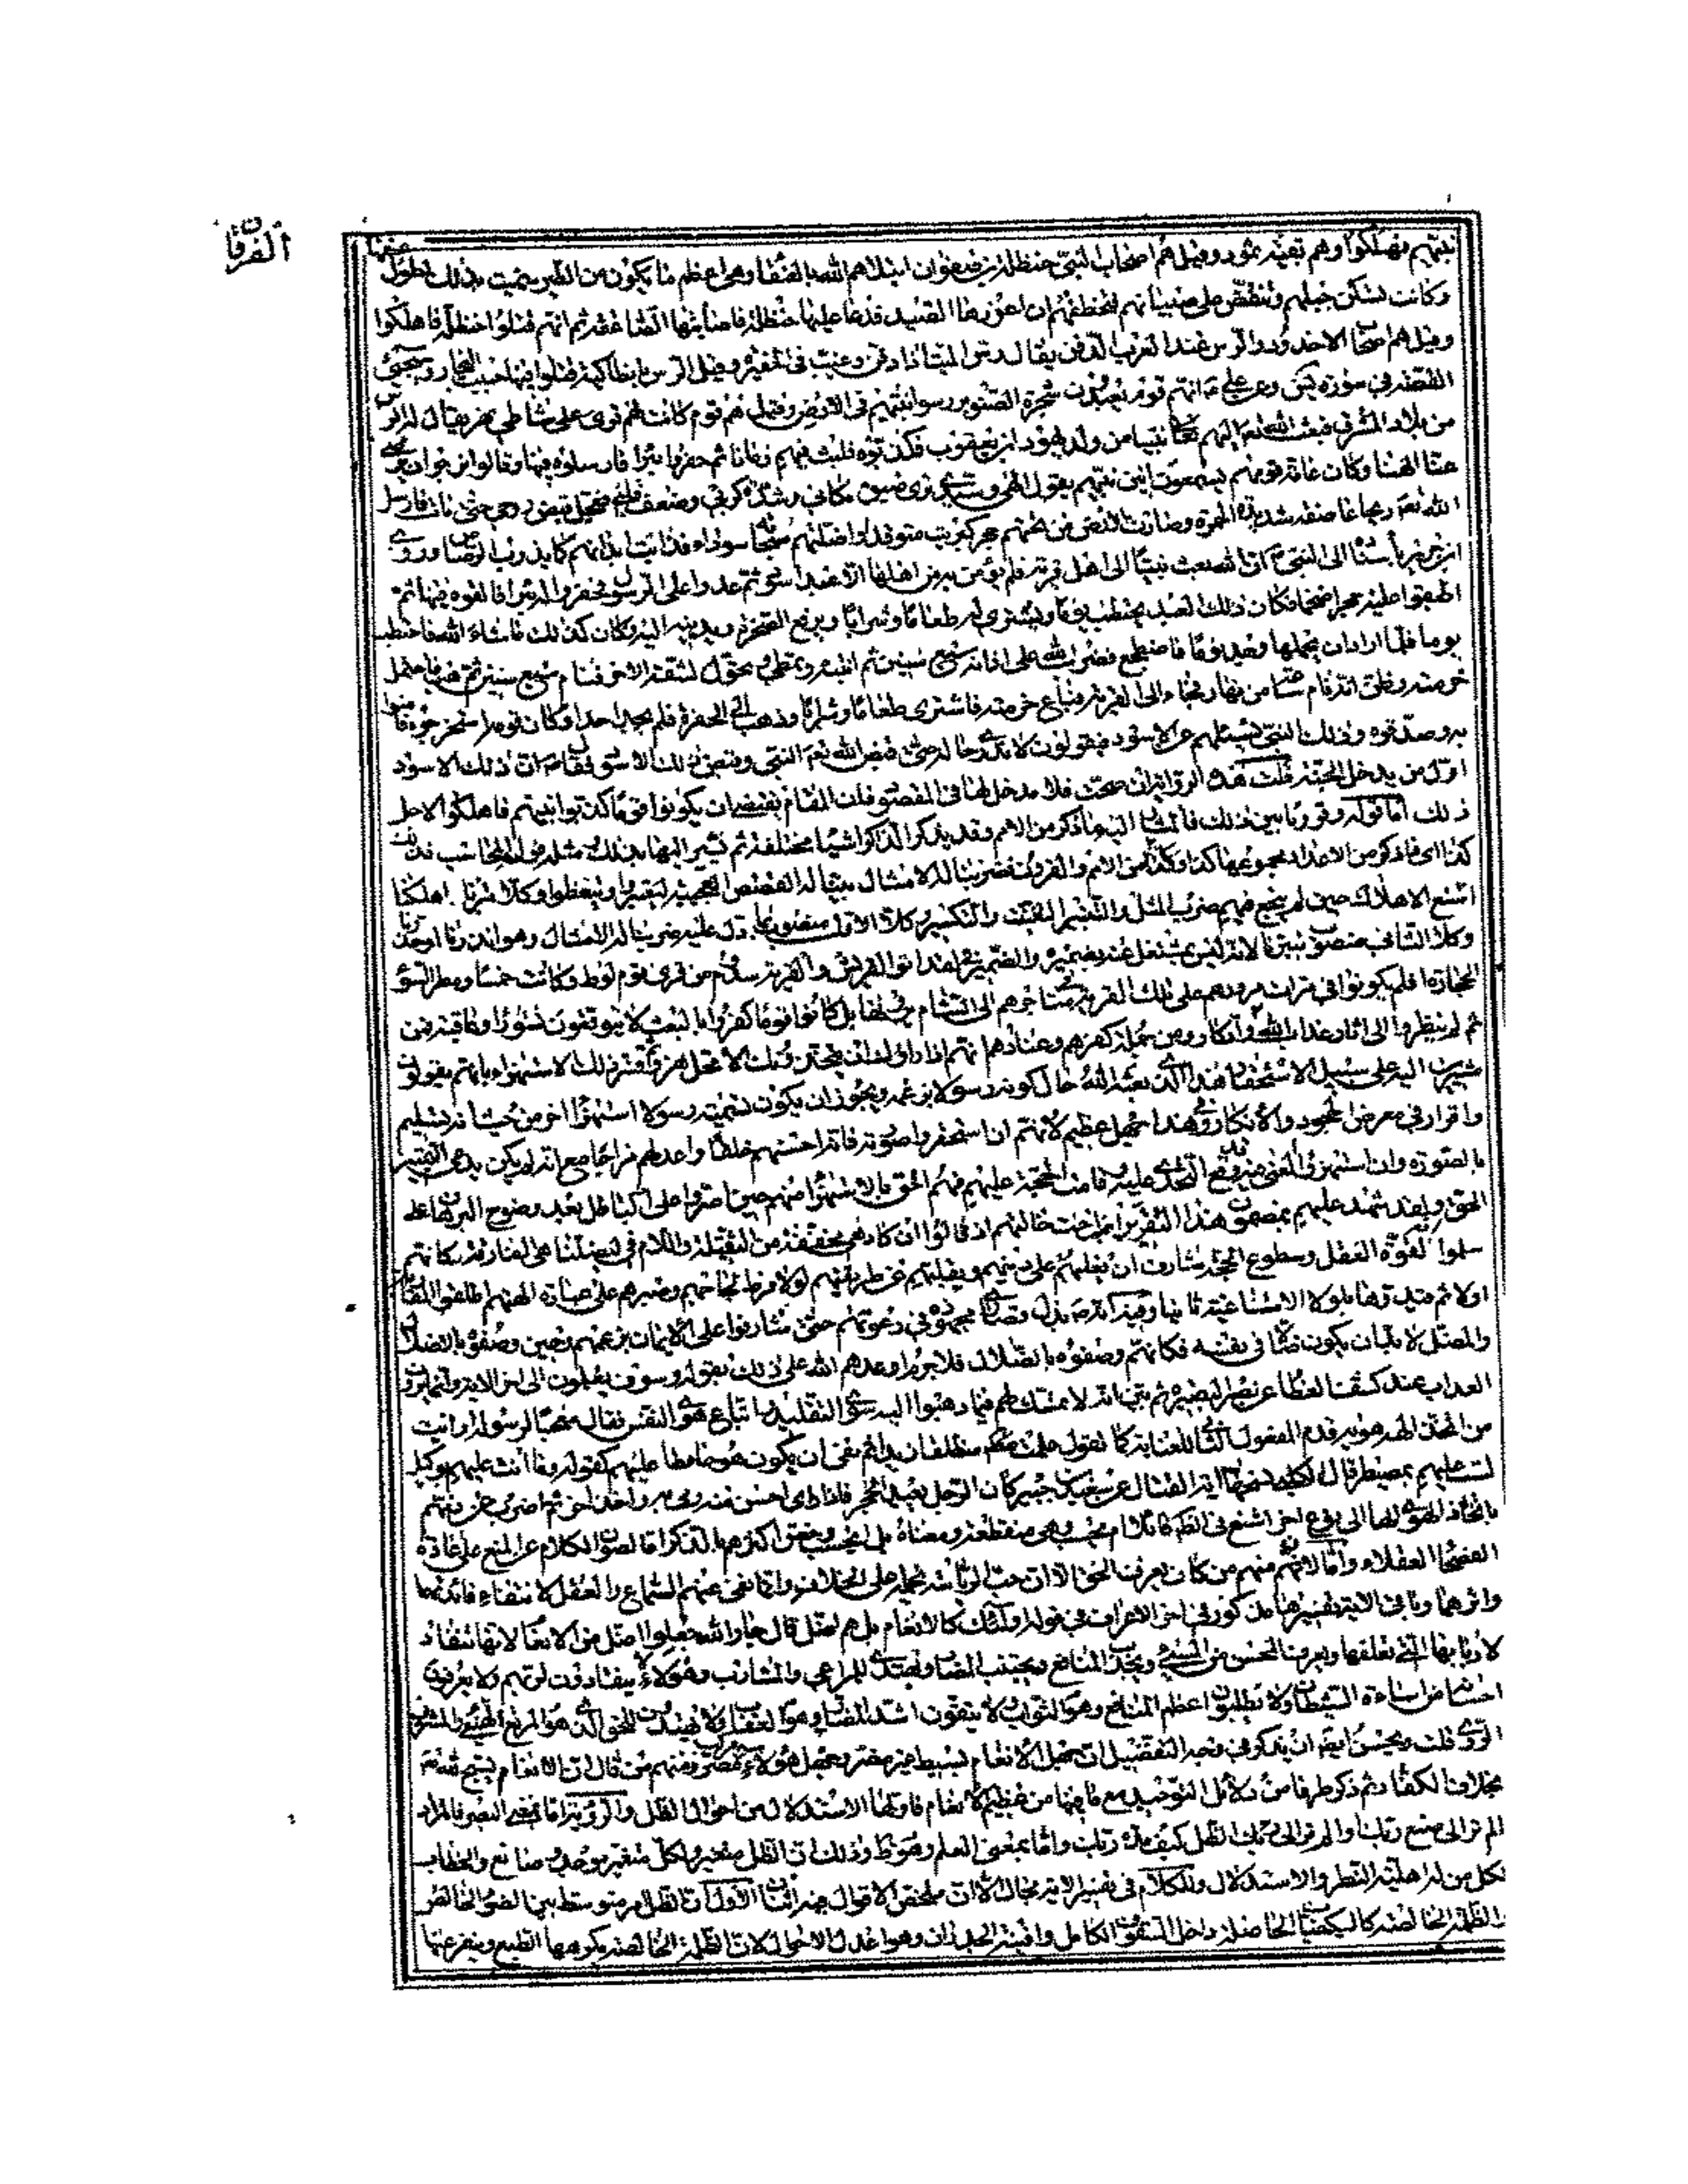 الفرقان
نبيهم فهلكوا وهم بقية ثمود وقيل هم اصحاب النبي حنظلة بن صفوان ابتلاهم الله بالعنقاء وهي اعظم ما يكون من الطير سميت بذلك لطول عنقها
وكانت تسكن جبلهم وتنقض على صبيانهم فتخطفهم ان اعوزها الصيد فدعا عليها حنظلة فاصابتها الصاعقة ثم انهم قتلوا حنظلة فاهلكوا
وقيل هم اصحاب الاخدود والرس عند العرب الدفن يقال رس الميت اذا دفن وغيب في الحفيرة وقيل الرس بانطاكية قتلوا فيها حبيب النجار وستجيئ
القصة في سورة يس وعن علي انهم قوم يعبدون شجرة الصنوبر رسوا نبيهم في الارض وقيل هم قوم كانت لهم قرى على شاطئ نهر يقال له الرس
من بلاد المشرق فبعث الله تعالى اليهم نبيا من ولد يهودا بن يعقوب فكذبوه فلبث فيهم زمانا ثم حفروا بئرا فارسلوه فيها وقالوا نرجوا ان يرضى
عنا الهنا وكان عامة قومهم يسمعون انين نبيهم يقول الهي وسيدي ترى ضيق مكاني وشدة كربي وضعف قلبي فعجل قبض روحي حتى مات فارسل
الله تعم ريحا عاصفة شديدة الحمرة وصارت الارض من تحتهم حجر كبريت متوقد واظلتهم سحابة سوداء فذابت ابدانهم كما يذوب الرصاص وروى
ابن جرير باسناده الى النبي ص ان الله بعث نبيا الى اهل قرية فلم يؤمن به من اهلها الا عبد اسود ثم عدوا على الرسول فحفروا له بئرا فالقوه فيها ثم
اطبقوا عليه حجرا ضخما فكان ذلك العبد يحتطب يوما ويشتري له طعاما وشرابا ويرفع الصخرة ويدليه اليه وكان كذلك ما شاء الله فاحتطب
يوما فلما اراد ان يحملها وجد نوما فاضطجع فضرب الله على اذانه سبع سنين ثم انتبه وتمطى وتحول لشقه الاخر فنام سبع سنين ثم هب فاحتمل
حزمته وظن انه نام ساعة من نهار فجاء الى القرية فباع حزمته فاشترى طعاما وشرابا وذهب الى الحفرة فلم يجد احدا وكان قومه استخرجوه فامنوا
به وصدقوه وذلك النبي يسئلهم عن الاسود فيقولون لا ندري حاله حتى قبض الله تعم النبي وقبض ذلك الاسود فقال ص ان ذلك الاسود
اول من يدخل الجنة قلت هذه الرواية ان صحت فلا مدخل لها في المقصود فان المقام يقتضي ان يكونوا قوما كذبوا نبيهم فاهلكوا لاجل
ذلك اما قوله وقرونا بين ذلك فالمشار اليه ما ذكر من الامم وقد يذكر الذاكر اشياء مختلفة ثم يشير اليها بذلك ومثله قول المحاسب فذلك
كذا اي ما ذكر من الاعداد مجموعها كذا وكلا من الامم والقرون ضربنا له الامثال بينا له القصص العجيبة ليعتبروا ويتعظوا وكلا تبرنا اهلكنا
اشنع الاهلاك حين لم ينجع فيهم ضرب المثل والتتبير التفتيت والتكسير وكلا الاول منصوب بما دل عليه ضربنا له الامثال وهو انذرنا او حذرنا
وكلا الثاني منصوب بتبرنا لانه ليس بمشتغل عنه بضميره والضمير في لقد اتوا لقريش والقرية سدوم من قرى قوم لوط وكانت خمسا ومطر السوء
الحجارة افلم يكونوا في مرات مرورهم على تلك القرية في متاجرهم الى الشام يرونها بل كانوا قوما كفروا بالبعث لا يتوقعون نشورا وعاقبة فمن
ثم لم ينظروا الى اثار عذاب الله وادكاره ومن جملة كفرهم وعنادهم انهم اذا راوك ان يتخذونك الا محل هزؤ ثم فسر ذلك الاستهزاء بانهم يقولون
مشيرين اليه على سبيل الاستحقار اهذا الذي بعثه الله حال كونه رسولا بزعمه ويجوز ان يكون تسميته رسولا استهزاء اخر من حيث انه تسليم
واقرار في معرض الجحود والانكار وهذا جهل عظيم لانهم ان استحقروا صورته فانه احسنهم خلقا واعدلهم مزاجا مع انه لم يكن يدعي التميز
بالصورة وان استهزؤا بالمعنى فبه وقع التحدي عليه قامت الحجة عليهم فهم احق بالاستهزاء منهم حين اصروا على الباطل بعد وضوح البرهان على
الحق ولقد شهد عليهم بمضمون هذا التقرير ابن اخت خالتهم اذ قالوا ان كاد هي مخففة من الثقيلة واللام في ليضلنا هي الفارقة كانهم
سلموا لقوة العقل وسطوع الحجة مشارفة ان يغلبهم على دينهم ويقلبهم عن طريقتهم لولا فرط لجاجهم وصبرهم على عبادة الهتهم اطلقوا المقاربة
اولا ثم قيدوها بلولا الامتناعية ثانيا وفيه انه ص بذل قصارى مجهوده في دعوتهم حتى شارفوا على الايمان بزعمهم وحين وصفوه بالاضلال
والمضل لا بد ان يكون ضالا في نفسه فكانهم وصفوه بالضلال فلا جرم اوعدهم الله على ذلك بقوله وسوف يعلمون الى اخر الاية وانما يرون
العذاب عند كشف الغطاء عن بصر البصيرة ثم بين انه لا متمسك لهم فيما ذهبوا اليه سوى التقليد واتباع هوى النفس فقال معجبا لرسوله ارايت
من اتخذ الهه هويه قدم المفعول الثاني للعناية كما تقول علمت منطلقا زيدا ثم نفى ان يكون هو حافظا عليهم كقوله وما انت عليهم بوكيل
لست عليهم بمصيطر قال الكلبي نسختها اية القتال عن سعيد بن جبير كان الرجل يعبد الحجر فاذا راى احسن منه رمى به واخذ اخر ثم اضرب عن ذمهم
باتخاذ الهوى الها الى نوع اخر اشنع في الظاهر قائلا ام تحسب وهي منقطعة ومعناه بل اتحسب وخص اكثرهم بالذكر اما لصون الكلام عن المنع على عادة
الفصحاء العقلاء واما لان منهم من كان يعرف الحق الا ان حب الرياسة يحمله على الخلاف وانما نفى عنهم السماع والعقل لانتفاء فائدتهما
واثرهما وباقي الاية تفسيرها مذكور في اخر الاعراف في قوله اولئك كالانعام بل هم اضل قال جار الله جعلوا اضل من الانعام لانها تنقاد
لاربابها التي تعلفها وتعرف المحسن من المسيء وتجذب المنافع وتجتنب المضار وتهتدي للمراعي والمشارب وهؤلاء لا ينقادون لربهم ولا يعرفون
احسانه من اساءة الشيطان ولا يطلبون اعظم المنافع وهو الثواب ولا يتقون اشد المضار وهو العقاب ولا يهتدون للحق الذي هو المرتع الهنيء والمشرب
الروي قلت ويحسن ايضا ان يذكر في وجه التفضيل ان جهل الانعام بسيط غير مضر وجهل هؤلاء مركب مضر ومنهم من قال ان الانعام يسبح لله تعم
بخلاف الكفار ثم ذكر طرفا من دلائل التوحيد مع ما فيها من عظيم الانعام فاولها الاستدلال من احوال الظل والرؤية اما بمعنى البصر فالمراد
الم تر الى صنع ربك او الم تر الى الظل كيف مده ربك واما بمعنى العلم وهو ظ وذلك ان الظل متغير ولكل متغير موجد وصانع والخطاب
لكل من له اهلية النظر والاستدلال وللكلام في تفسير الاية مجال الا ان ملخص الاقوال فيه اثنان الاول ان الظل امر متوسط بين الضوء الخالص
والظلمة الخالصة كالكيفية الحاصلة داخل السقوف الكامل وافنية الجدران وهو اعدل الاحوال لان الظلمة الخالصة يكرهها الطبع وينفر عنها